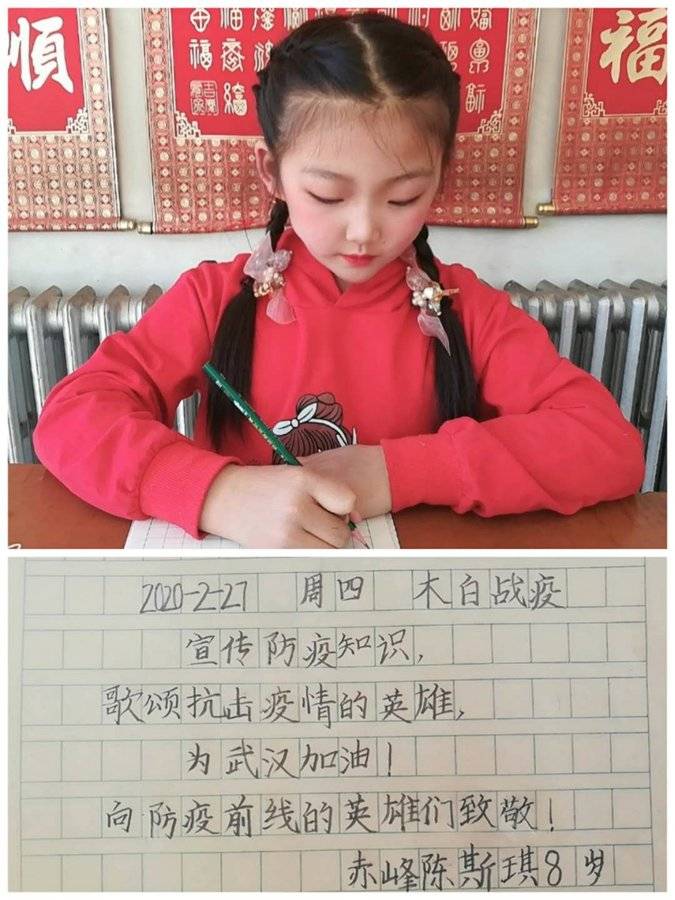 順
福
2020-2-27 周四 木白战疫
宣传防疫知识,
歌颂抗击疫情的英雄,
为武汉加油!
向防疫前线的英雄们致敬!
赤峰陈斯琪8岁